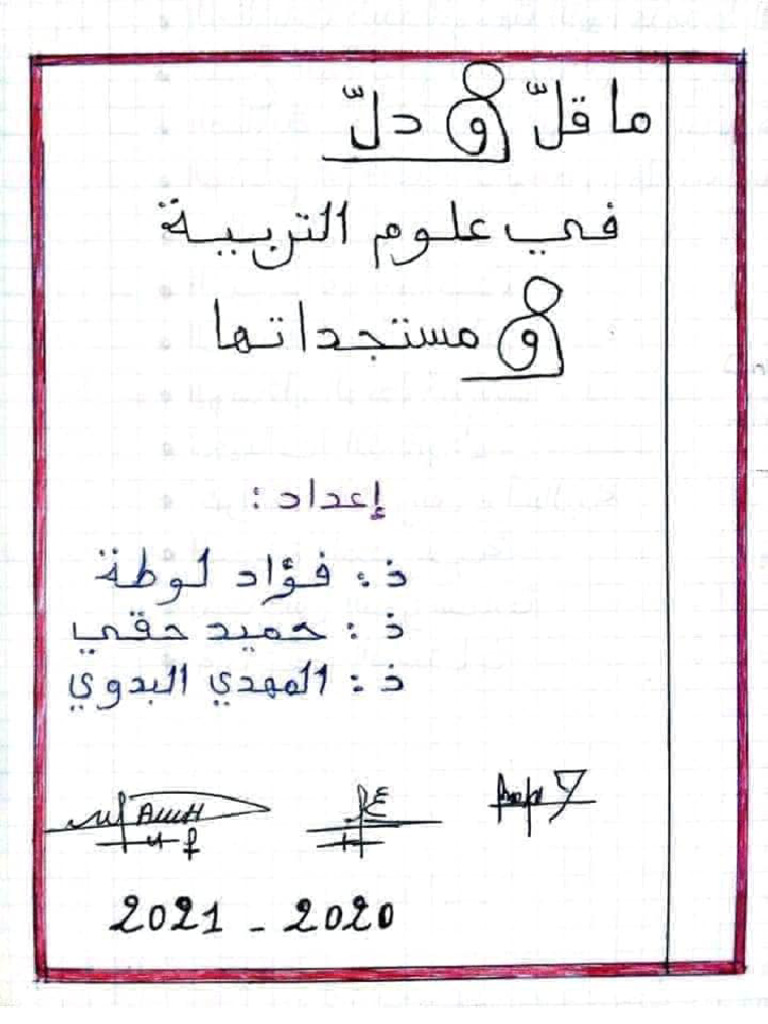 ما قلّ و دلّ
في علوم التربية
و مستجداتها
إعداد :
ذ : فؤاد لوطة
ذ : حميد حقي
ذ : المهدي البدوي
2021 - 2020